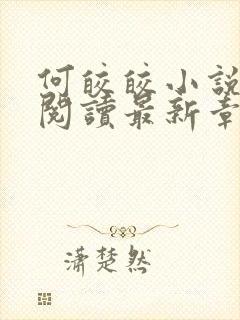 何皎皎小說
閱讀最新章
瀟楚然